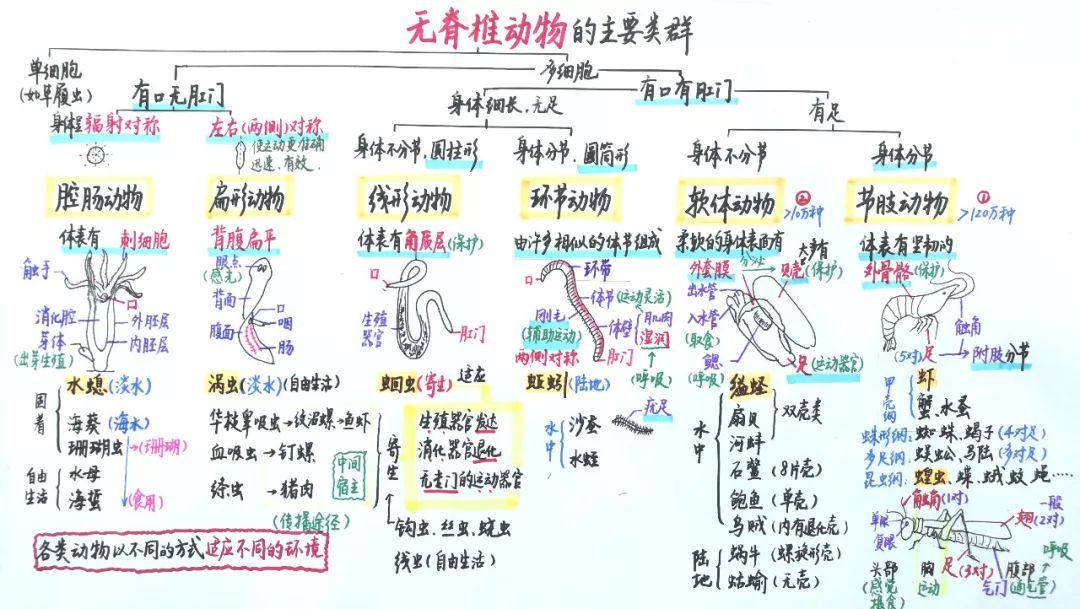 无脊椎动物的主要类群
单细胞
(如草履虫)
多细胞
有口无肛门
有口有肛门
身体细长,无足
有足
身体呈辐射对称
左右(两侧)对称
使运动更准确
迅速、有效.
身体不分节,圆柱形
身体分节,圆筒形
身体不分节
身体分节
腔肠动物
扁形动物
线形动物
环节动物
软体动物
② >10万种
节肢动物
① >120万种
体表有刺细胞
触手
口
消化腔
外胚层
芽体
内胚层
(出芽生殖)
水螅(淡水)
固着
海葵(海水)
珊瑚虫→(珊瑚)
自由生活
水母
海蜇
(食用)
背腹扁平
眼点
(感光)
背面
口
腹面
咽
肠
涡虫(淡水)(自由生活)
华枝睾吸虫→纹沼螺→鱼虾
血吸虫→钉螺
绦虫→猪肉
中间宿主
(传播途径)
体表有角质层(保护)
口
生殖器官
肛门
蛔虫(寄生)
适应
寄生
生殖器官发达
消化器官退化
无专门的运动器官
钩虫、丝虫、蛲虫
线虫(自由生活)
由许多相似的体节组成
口
环带
体节(运动灵活)
刚毛
(辅助运动)
体壁
肌肉
湿润
两侧对称
肛门
(呼吸)
蚯蚓(陆地)
水中
沙蚕
疣足
水蛭
柔软的身体表面有
外套膜
分泌
大多有
贝壳(保护)
出水管
入水管
(取食)
鳃
(呼吸)
足(运动器官)
水中
缢蛏
扇贝
河蚌
双壳类
石鳖(8片壳)
鲍鱼(单壳)
乌贼(内有退化壳)
陆地
蜗牛(螺旋形壳)
蛞蝓(无壳)
体表有坚韧的
外骨骼(保护)
触角
(5对)足
附肢分节
甲壳纲
虾
蟹 水蚤
蛛形纲:蜘蛛、蝎子(4对足)
多足纲:蜈蚣、马陆(多对足)
昆虫纲:蝗虫、蝶、蛾、蚊、蝇……
触角(1对)
单眼
复眼
一般
翅(2对)
呼吸
头部
(感觉摄食)
胸
运动
足(3对)
腹部
气门(通气管)
各类动物以不同的方式适应不同的环境